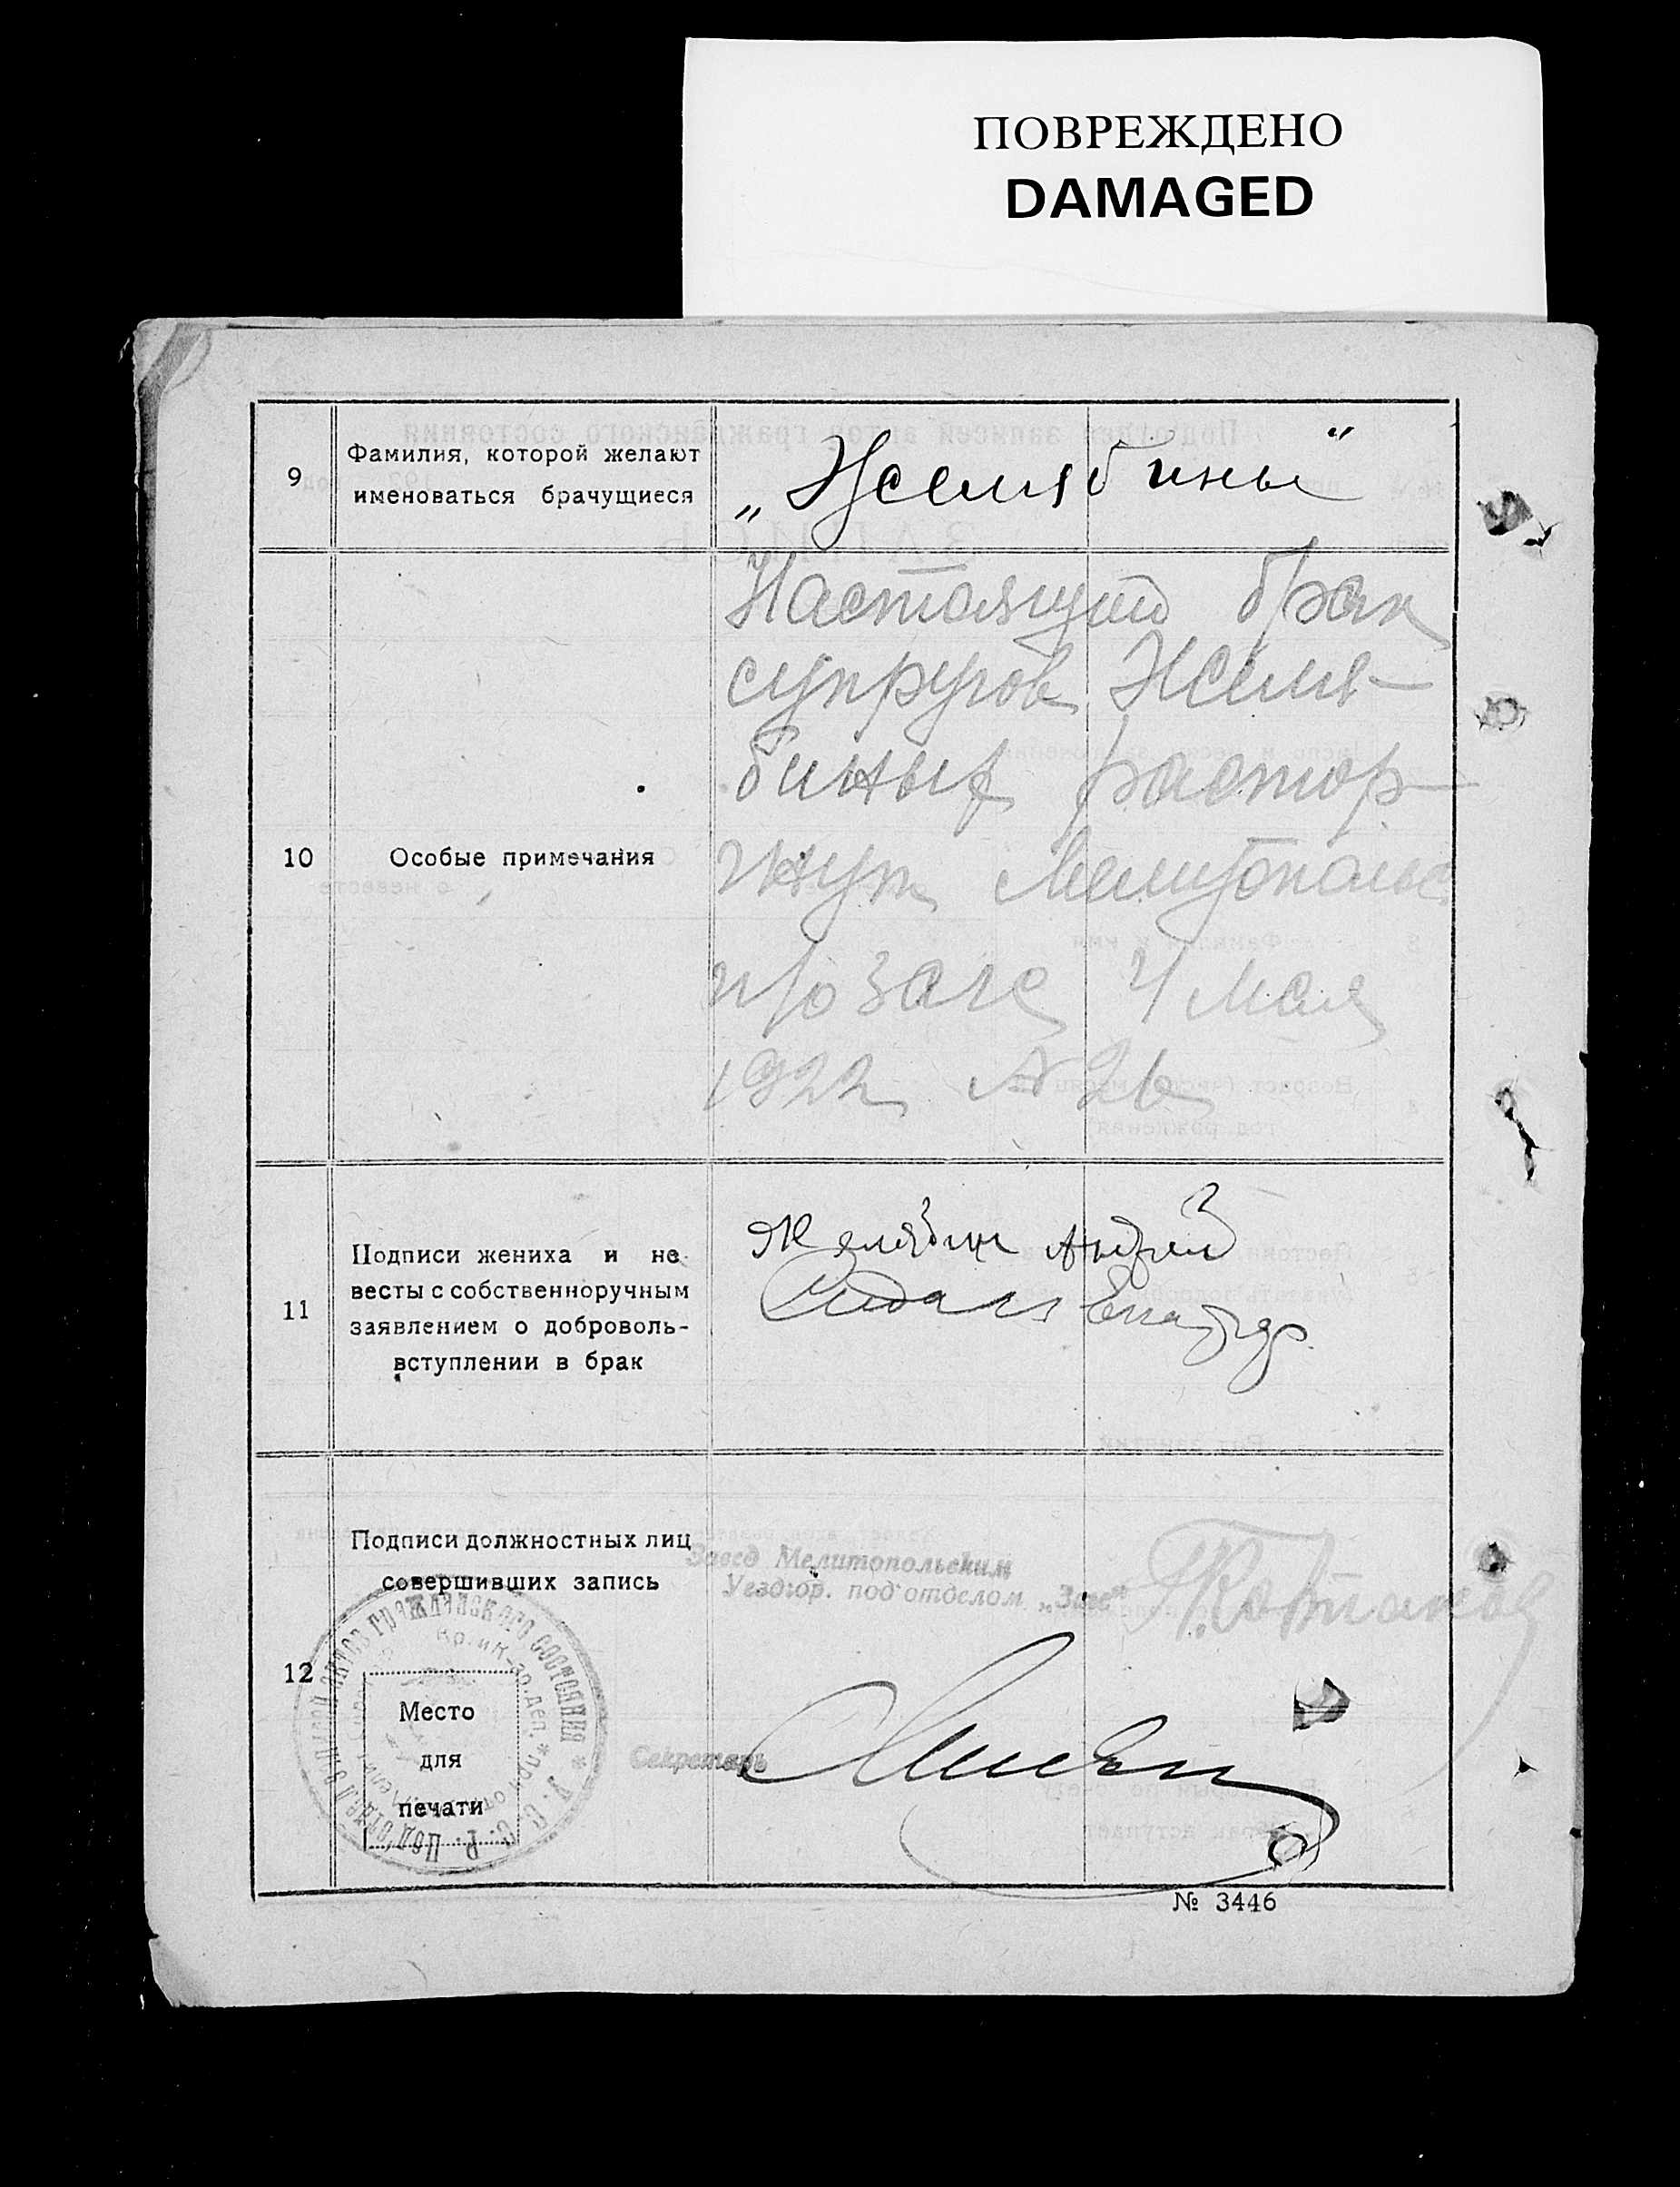 ПОВРЕЖДЕНО
DAMAGED
9
Фамилия, которой желают
именоваться брачущиеся
„Желябины“
10
Особые примечания
Настоящий брак
супругов Желя-
биных растор-
гнут Мелитопольс
4 мая
1922 № 26
11
Подписи жениха и не
весты с собственноручным
заявлением о доброволь-
вступлении в брак
Желябин Андрей
12
Подписи должностных лиц
совершивших запись
Завед Мелитопольским
Уездгор. под'отделом „Загс“
Секретарь
Место
для
печати
Под'отдел записей актов гражданского состояния * У. С. С. Р.
№ 3446